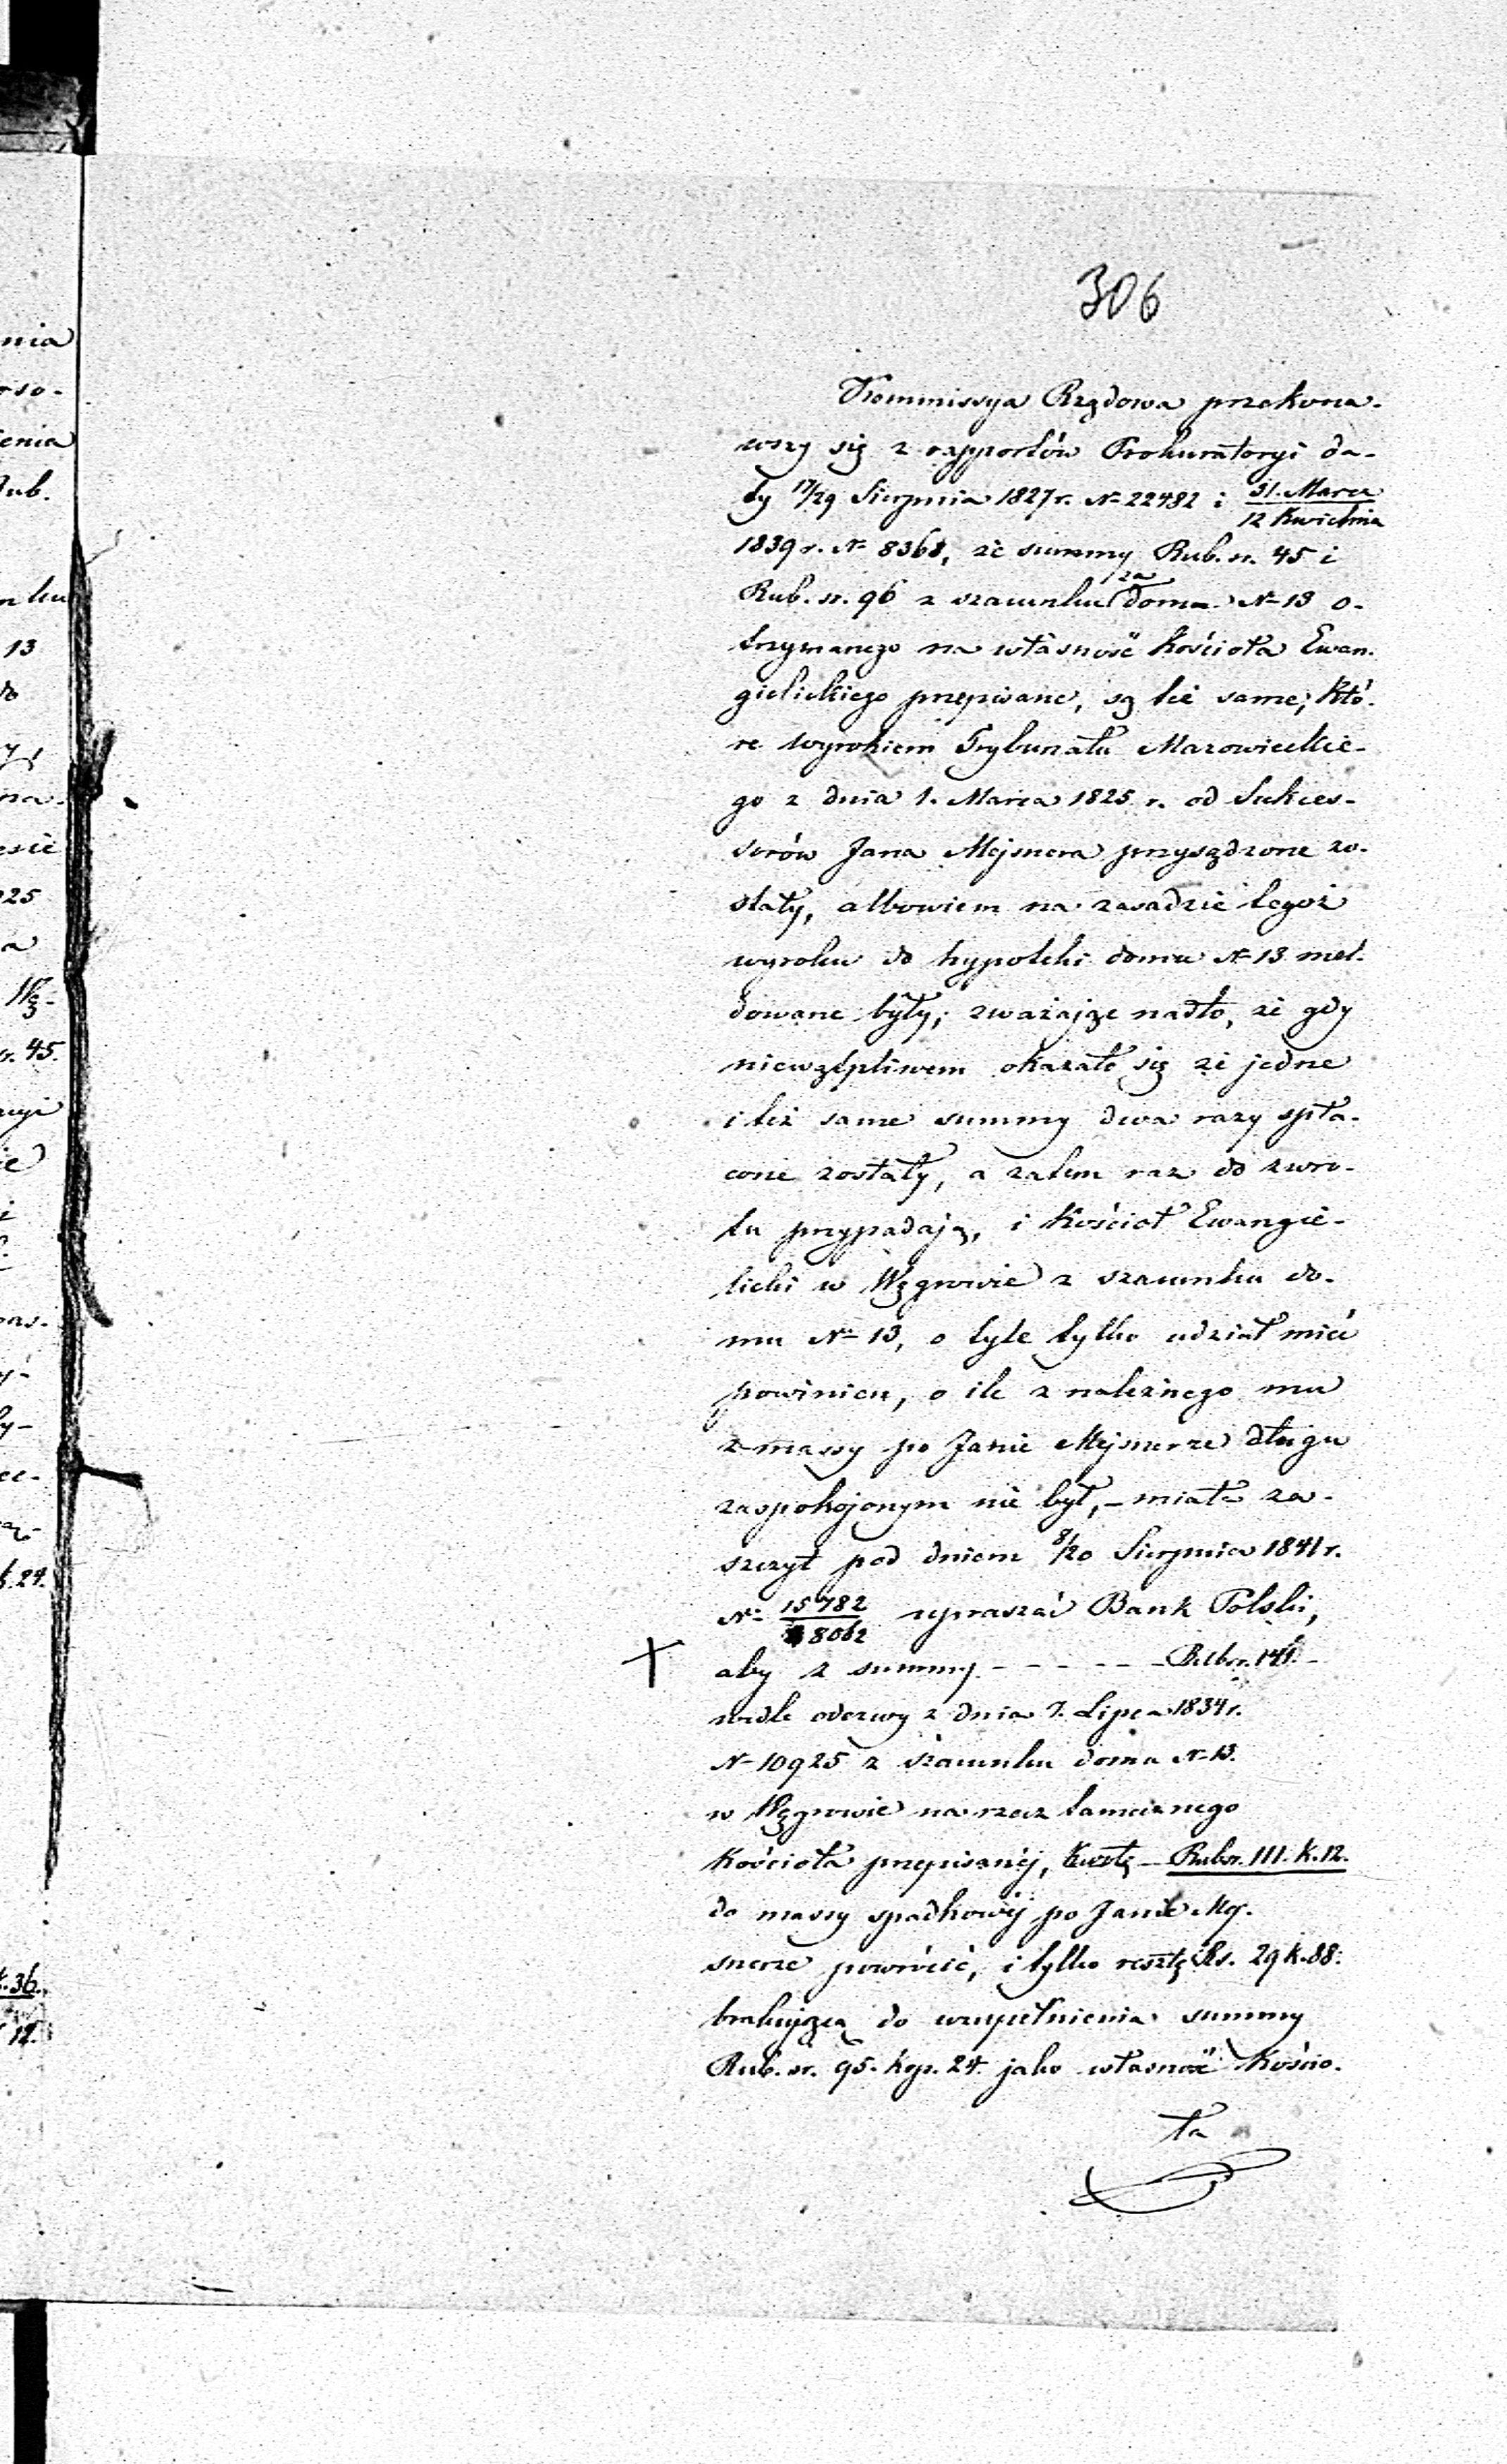 306
Kommissya Rządowa przekona-
wszy się z rapportów Prokuratoryi da-
ty 17/29 Sierpnia 1827 r. N 22482 i 31. Marca / 12 Kwietnia
1839 r. N 8368, że summy Rub. sr. 45 i
Rub. sr. 96 z szacunku za domu N 13 o-
trzymanego na własność Kościoła Ewan-
gielickiego przepisane, są też same, któ-
re wyrokiem Trybunału Mazowieckie-
go z dnia 1. Marca 1825 r. od Sukces-
sorów Jana Mejsnera przysądzone zo-
stały, albowiem na zasadzie tegoż
wyroku do hypoteki domu N 13 mel-
dowane były; zważając nadto, że gdy
niewątpliwem okazało się że jedne
i też same summy dwa razy spła-
cone zostały, a zatem raz do zwro-
tu przypadają, i Kościoł Ewangie-
licki w Węgrowie z szacunku do-
mu N 13, o tyle tylko udział mieć
powinien, o ile z należnego mu
z massy po Janie Mejsnerze długu
zaspokojonym nie był, – miała za-
szczyt pod dniem 8/20 Sierpnia 1841 r.
N 15782 / 8062 upraszać Bank Polski,
aby z summy - - - - - - Rubsr. 141. -
wedle odezwy z dnia 7. Lipca 1834 r.
N 10925 z szacunku domu N 13.
w Węgrowie na rzecz tamecznego
Kościoła przepisanéj, kwotę – Rubsr. 111. k. 12.
do massy spadkowéj po Janie Mej-
snerze powrócić, i tylko resztę Rs. 29 k. 88.
brakującą do uzupełnienia summy
Rub. sr. 95. kop. 24. jako własność Kościo-
ła
nia
rso-
enia
Rub.
nku
13
do
na-
esie
25
a
Wę-
r. 45.
ie
i
as-
y-
ly-
ce-
k. 24.
k. 36.
12.